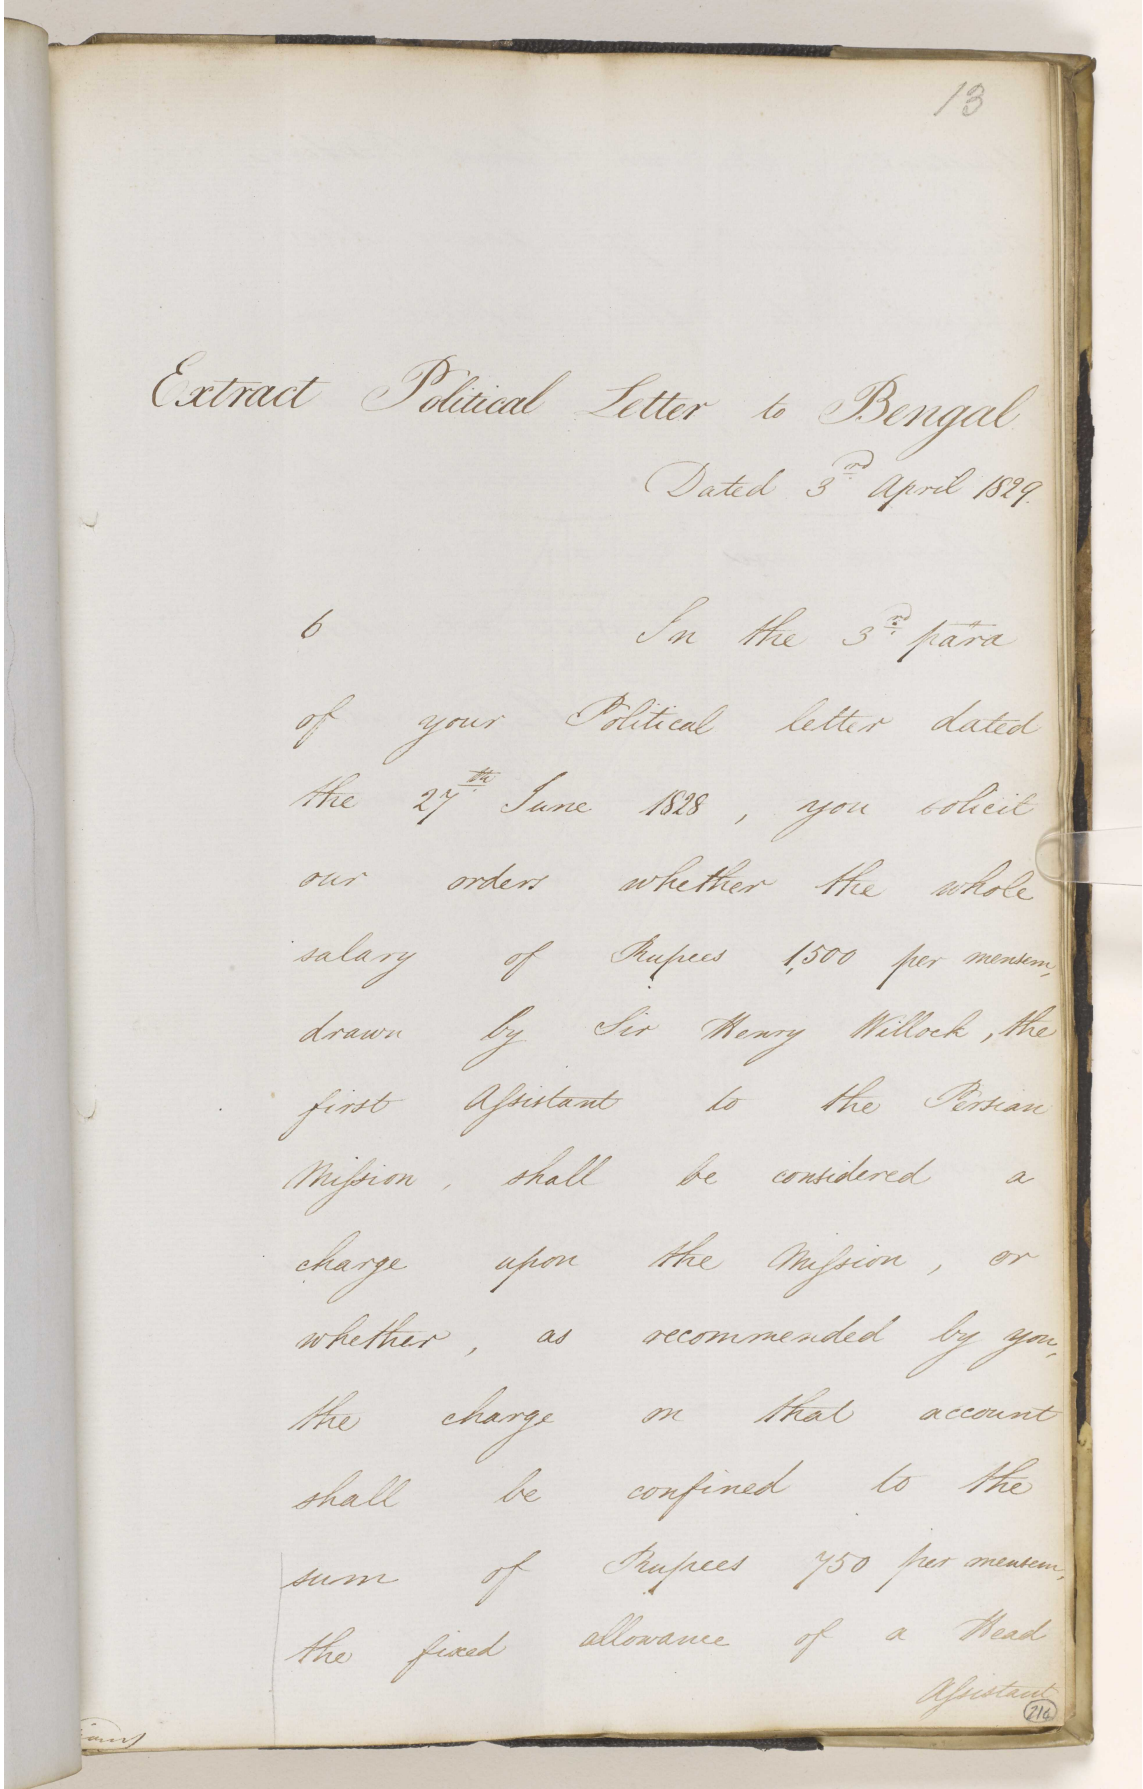 13
Extract Political Letter to Bengal
Dated 3rd April 1829.
6 In the 3rd para
of your Political letter dated
the 27th June 1828, you solicit
our orders whether the whole
salary of Rupees 1,500 per mensem,
drawn by Sir Henry Willock, the
first Assistant to the Persian
Mission, shall be considered a
charge upon the Mission, or
whether, as recommended by you,
the charge on that account
shall be confined to the
sum of Rupees 750 per mensem,
the fixed allowance of a Head
Assistant
216